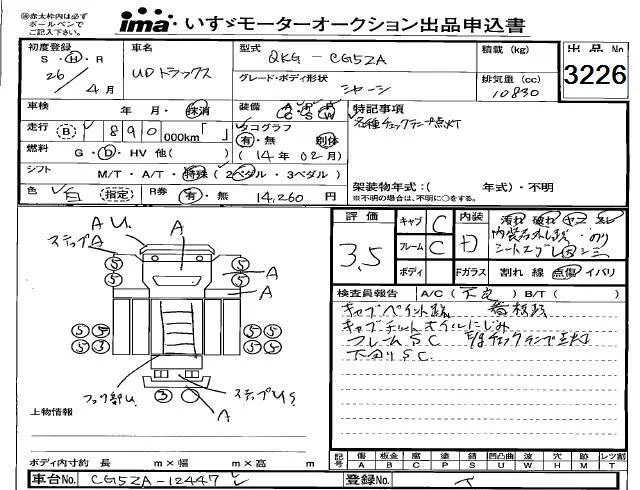 ㊟赤太枠内は必ず
ボールペンで
ご記入下さい。
ima・いすゞモーターオークション出品申込書
初度登録
S・H・R
26/4月
車名
UDトラックス
型式
QKG - CG5ZA
グレード・ボディ形状
シャーシ
積載 (kg)
排気量 (cc)
10830
出品No
3226
車検
年 月・抹消
装備
A P A
C S W
特記事項
各種チェックランプ点灯
走行
(B) 890
000km「 」
タコグラフ
有・無 別体
(14年02月)
燃料
G・D・HV 他( )
シフト
M/T・A/T・特殊(2ペダル・3ペダル)
色
白
(指定)
R券
有・無
14,260円
架装物年式:( 年式)・不明
※不明の場合は、不明に○をする。
評価
3.5
キャブ C
フレーム C
ボディ
内装
D
汚れ 破れ ヤニ スレ
Fガラス
割れ 線 点傷 イバリ
A U.
ステップA
A
A
A
⑤ ⑤
⑤ ⑤
⑤⑤ ⑤⑤
⑤③ ⑤⑤
③
フック部U.
ステップU S.
A
検査員報告
A/C(不良) B/T( )
キャブペイント跡 看板跡
キャブチルトオイルにじみ
フレームSC E/gチェックランプ点灯
下回りSC
上物情報
ボディ内寸約 長 m×幅 m×高 m
記号
傷 板金 腐 塗 錆 凹凸曲 波 穴 跡 レツ割
A B C P S U W H M T
車台No.
CG5ZA-12447
登録No.